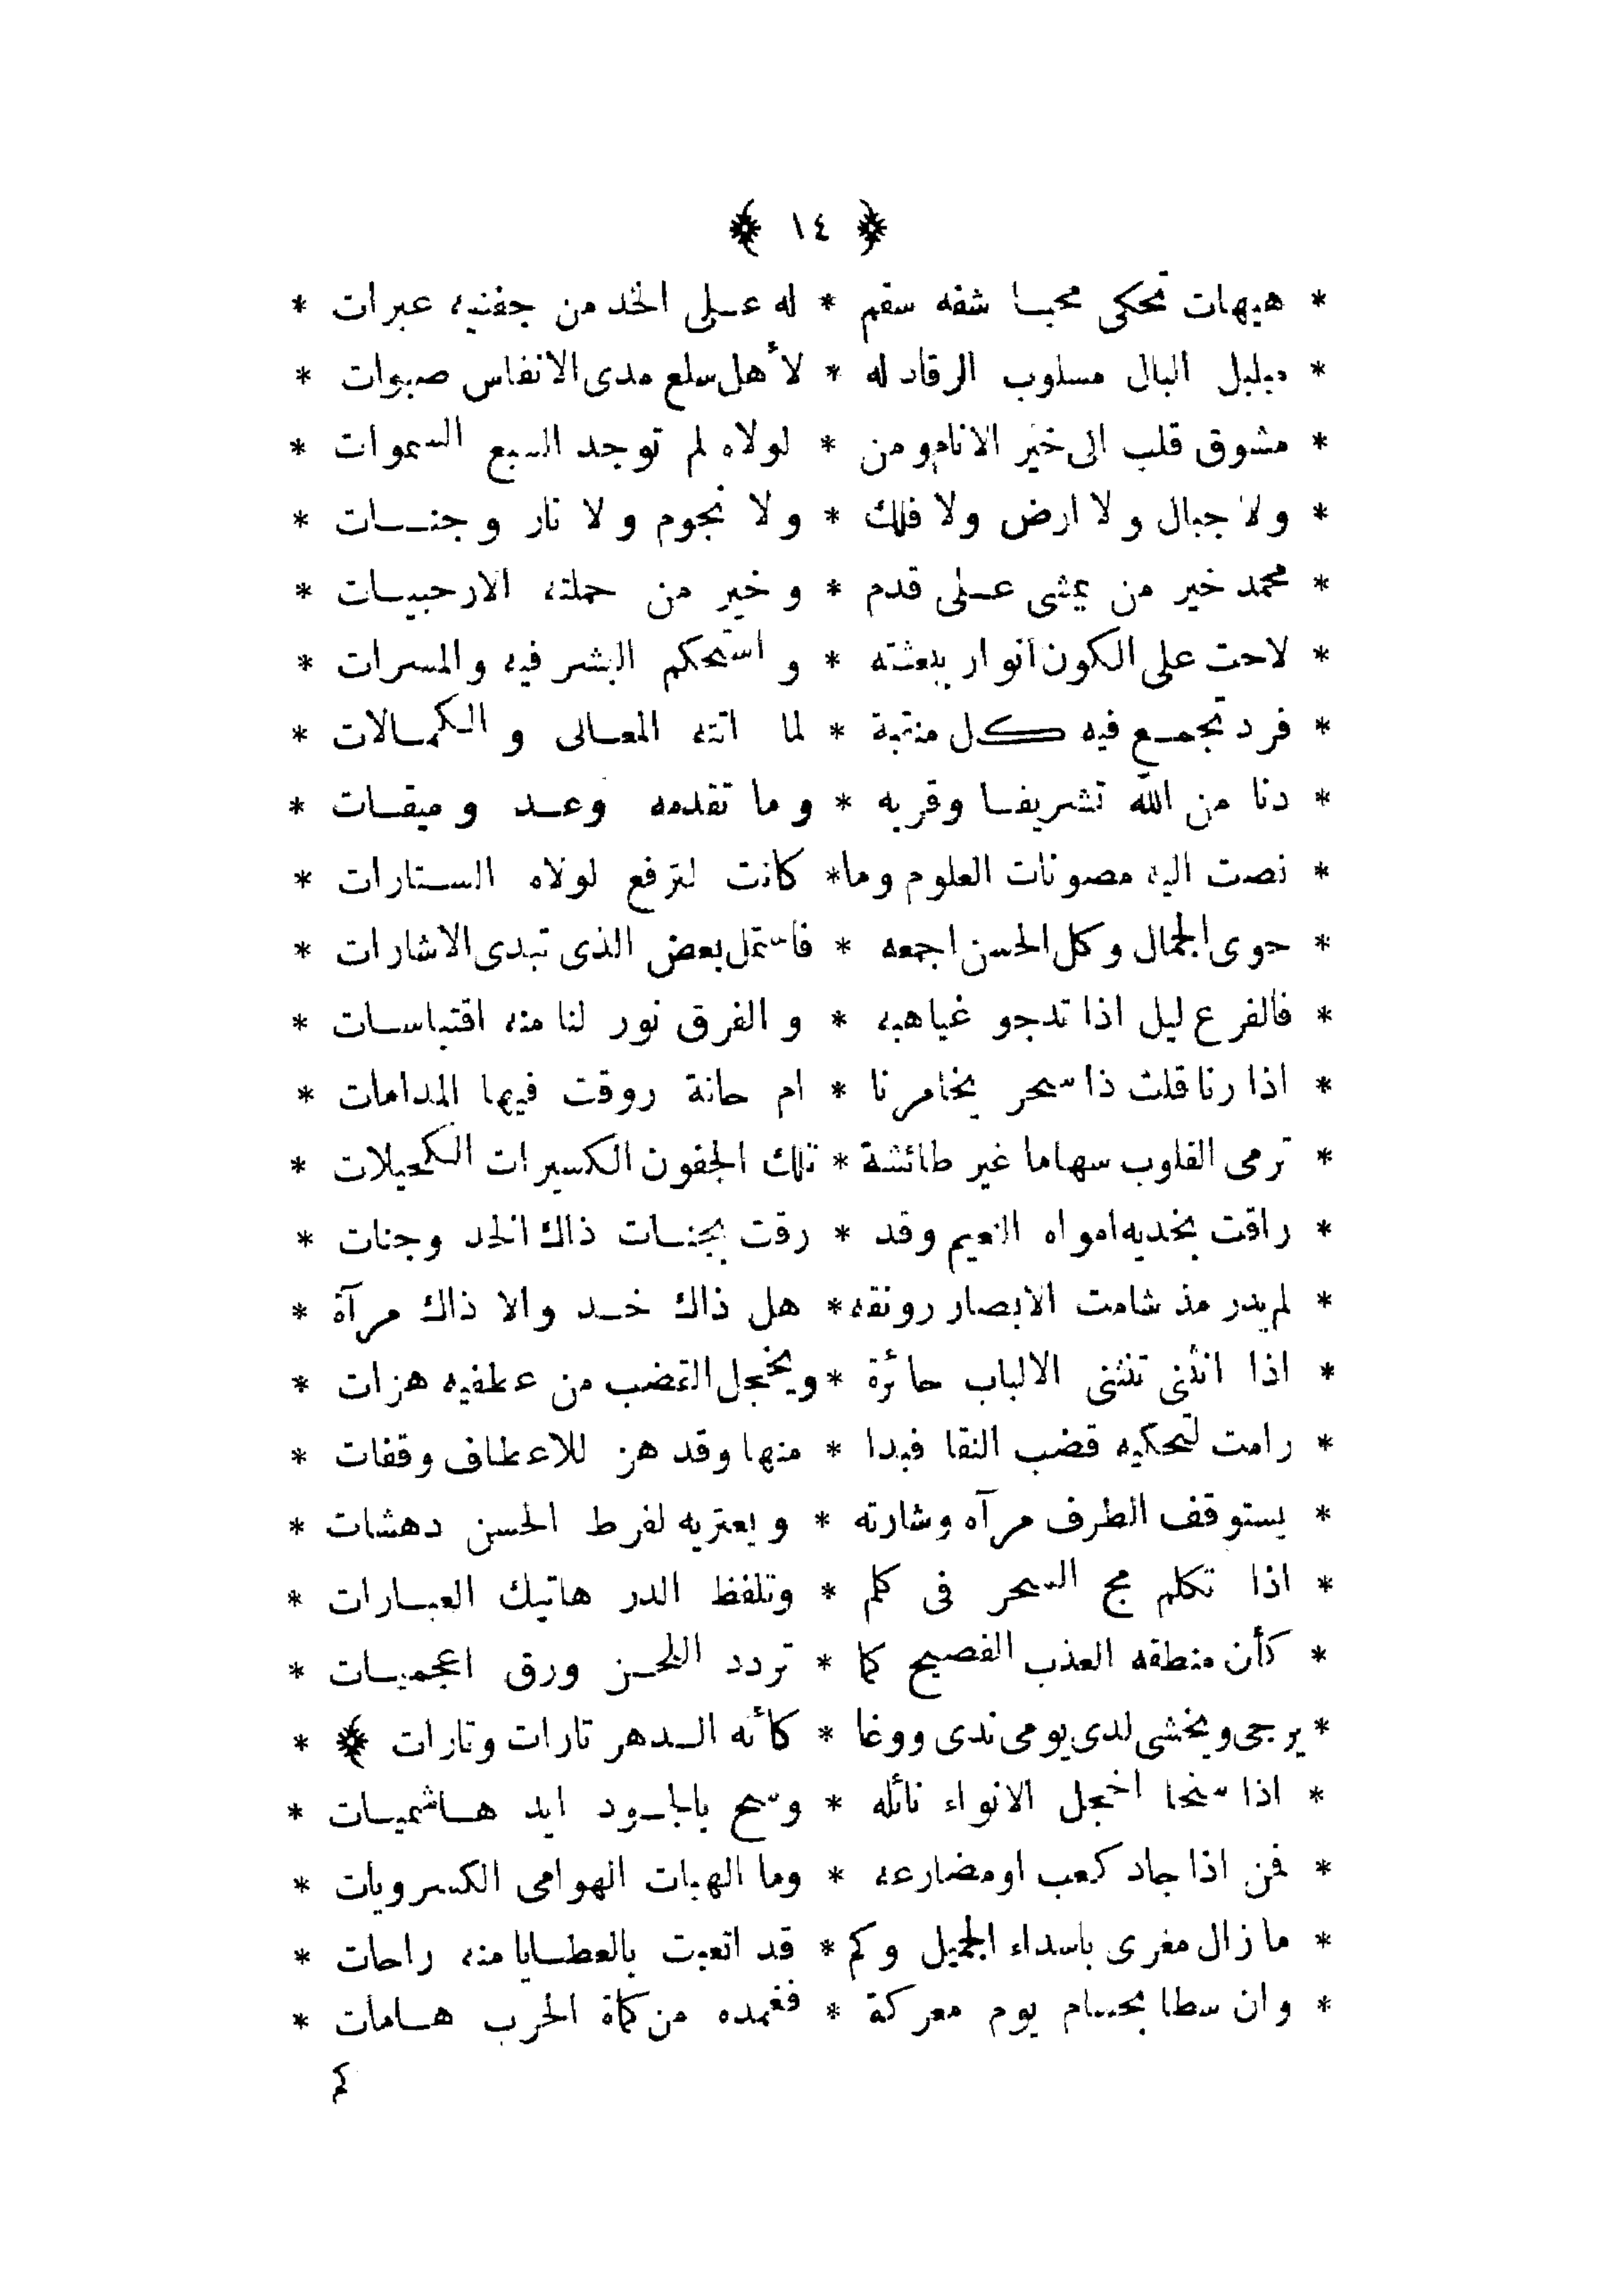 ﴿ ١٤ ﴾
* هيهات تحكى محبا شفه سقم * له على الخد من جفنيه عبرات *
* مبلبل البال مسلوب الرقاد له * لأهل سلع مدى الانفاس صبوات *
* مشوق قلب الى خير الانام ومن * لولاه لم توجد السبع السموات *
* ولا جبال ولا ارض ولا فلك * ولا نجوم ولا نار وجنات *
* محمد خير من يمشى على قدم * وخير من حملته الارحبيات *
* لاحت على الكون انوار ببعثته * واستحكم البشر فيه والمسرات *
* فرد تجمع فيه كل منقبة * لما اتته المعالى والكمالات *
* دنا من الله تشريفا وقربه * وما تقدمه وعد وميقات *
* نصت اليه مصونات العلوم وما * كانت لترفع لولاه الستارات *
* حوى الجمال وكل الحسن اجمعه * فاستمل بعض الذى تبدى الاشارات *
* فالفرع ليل اذا تدجو غياهبه * والفرق نور لنا منه اقتباسات *
* اذا رنا قلت ذا سحر يخامرنا * ام حانة روقت فيها المدامات *
* ترمى القلوب سهاما غير طائشة * تلك الجفون الكسيرات الكحيلات *
* راقت بخديه امواه النعيم وقد * رقت بجنات ذاك الخد وجنات *
* لم يدر مذ شامت الابصار رونقه * هل ذاك خد والا ذاك مرآة *
* اذا انثنى تنثنى الالباب حائرة * ويخجل القضب من عطفيه هزات *
* رامت لتحكيه قضب النقا فبدا * منها وقد هز للاعطاف وقفات *
* يستوقف الطرف مرآه وشارته * ويعتريه لفرط الحسن دهشات *
* اذا تكلم مج السحر فى كلم * وتلفظ الدر هاتيك العبارات *
* كأن منطقه العذب الفصيح كما * تردد اللحن ورق اعجميات *
* يرجى ويخشى لدى يومى ندى ووغا * كأنه الدهر تارات وتارات ﴾ *
* اذا سخا اخجل الانواء نائله * وسح بالجود ايد هاشميات *
* فمن اذا جاد كعب او مضارعه * وما الهبات الهوامى الكسرويات *
* ما زال مغرى باسداء الجميل وكم * قد اتعبت بالعطايا منه راحات *
* وان سطا بحسام يوم معركة * فغمده من كماة الحرب هامات *
كم